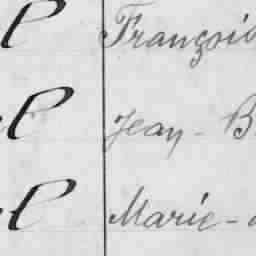 l Françoi
l Jean - B
l Marie -